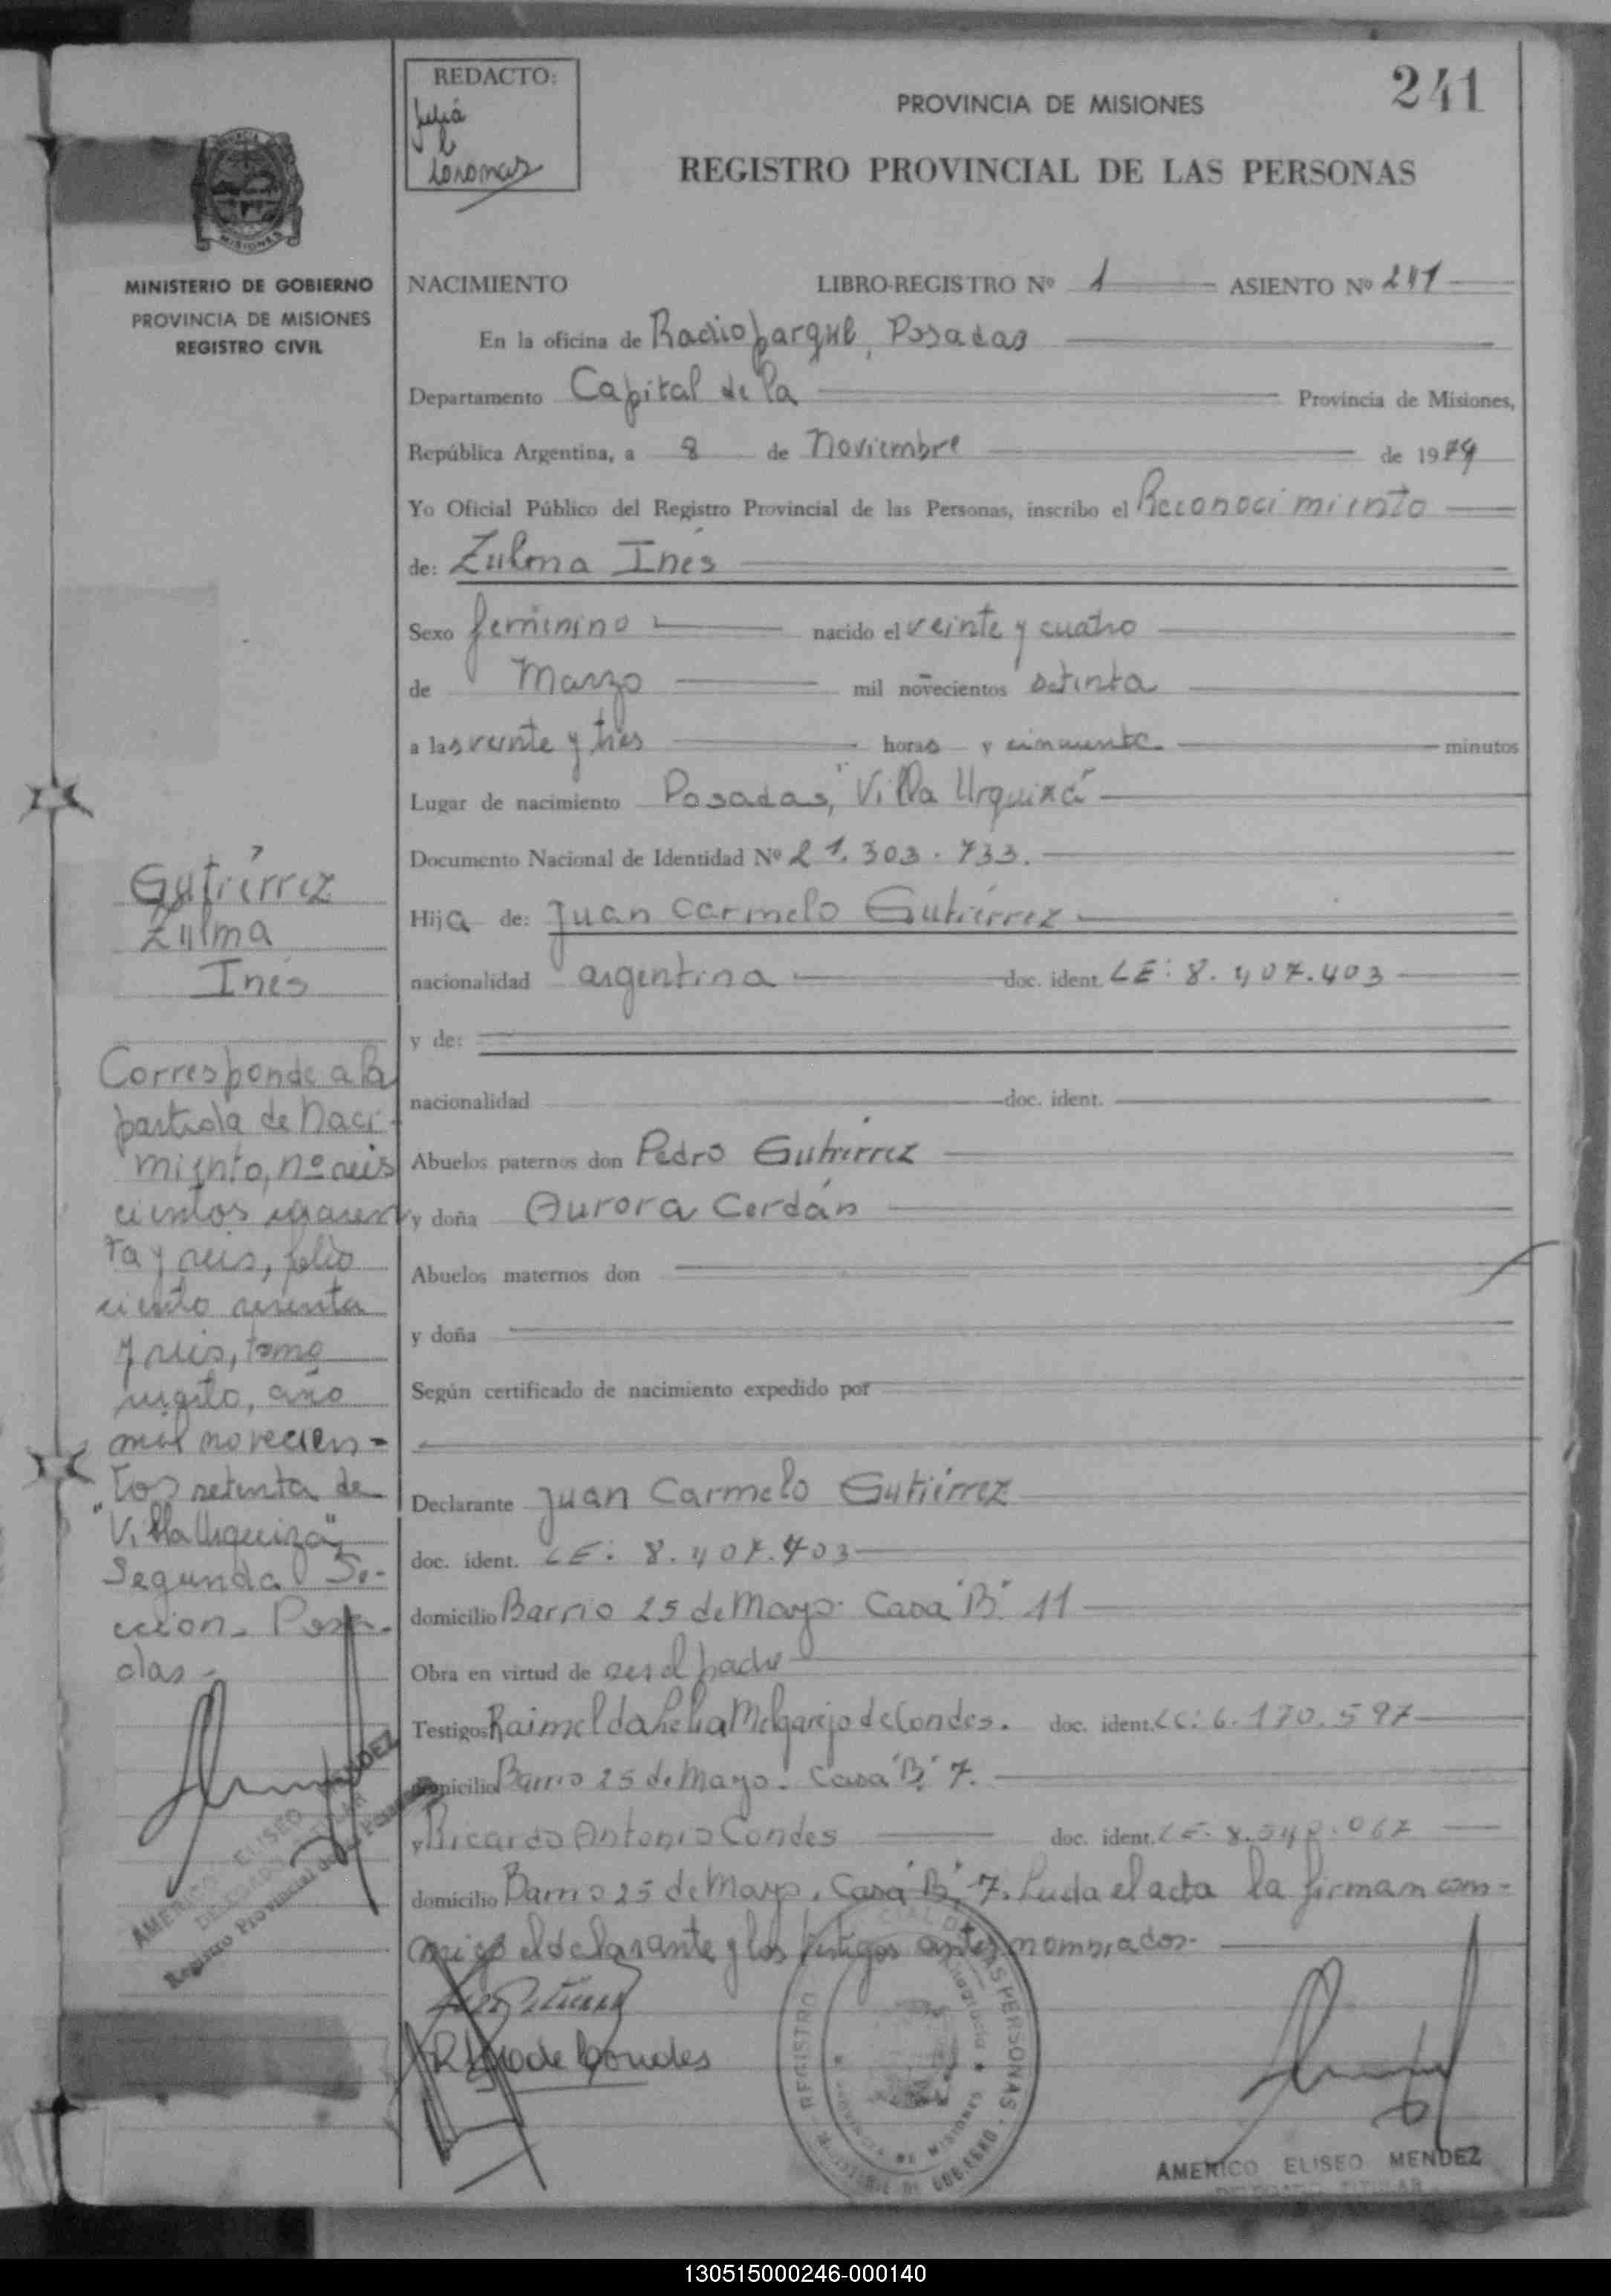 REDACTO:
241
PROVINCIA DE MISIONES
REGISTRO PROVINCIAL DE LAS PERSONAS
MISIONES
MINISTERIO DE GOBIERNO
PROVINCIA DE MISIONES
REGISTRO CIVIL
NACIMIENTO LIBRO-REGISTRO Nº 1 ASIENTO Nº 241
En la oficina de Radioparque, Posadas
Departamento Capital de la Provincia de Misiones,
República Argentina, a 8 de Noviembre de 1979
Yo Oficial Público del Registro Provincial de las Personas, inscribo el Reconocimiento
de: Zulma Inés
Sexo femenino nacido el veinte y cuatro
de Marzo mil novecientos setenta
a las veinte y tres horas y cincuenta minutos
Lugar de nacimiento Posadas, "Villa Urquiza"
Documento Nacional de Identidad Nº 21.303.733.
Hija de: Juan Carmelo Gutiérrez
nacionalidad argentina doc. ident. LE: 8.407.403
y de:
nacionalidad doc. ident.
Abuelos paternos don Pedro Gutiérrez
y doña Aurora Cerdán
Abuelos maternos don
y doña
Según certificado de nacimiento expedido por
Declarante Juan Carmelo Gutiérrez
doc. ident. LE: 8.407.403
domicilio Barrio 25 de Mayo. Casa "B" 11
Obra en virtud de ser el padre
Testigos Raimelda Lelia Melgarejo de Condes. doc. ident. LC: 6.170.597
domicilio Barrio 25 de Mayo. Casa "B" 7.
y Ricardo Antonio Condes doc. ident. LE. 8.542.067
domicilio Barrio 25 de Mayo. Casa "B" 7. Leida el acta la firman con-
migo el declarante y los testigos antes nombrados.
Gutiérrez
Zulma
Inés
Corresponde a la
partida de Naci-
miento, nº seis
cientos cuaren
ta y seis, folio
ciento sesenta
y seis, tomo
cuarto, año
mil novecien-
tos setenta de
"Villa Urquiza"
Segunda Se-
ccion. Posa-
das.
AMERICO ELISEO MENDEZ
DELEGADO TITULAR
Registro Provincial de las Personas
de Condes
REGISTRO PROVINCIAL DE LAS PERSONAS
MINISTERIO DE GOBIERNO
PROVINCIA DE MISIONES
AMERICO ELISEO MENDEZ
DELEGADO TITULAR
130515000246-000140